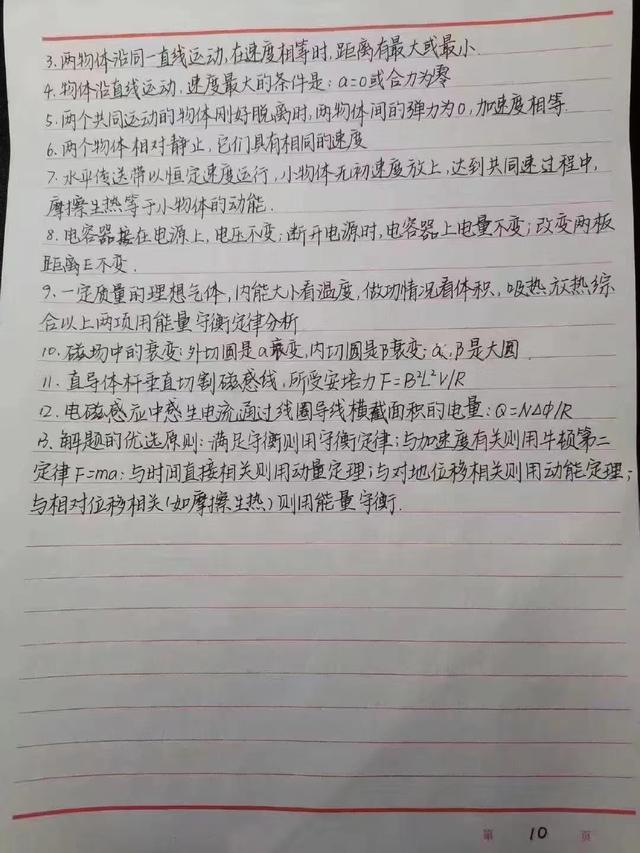 3.两物体沿同一直线运动,在速度相等时,距离有最大或最小.
4.物体沿直线运动,速度最大的条件是:a=0或合力为零
5.两个共同运动的物体刚好脱离时,两物体间的弹力为0,加速度相等.
6.两个物体相对静止,它们具有相同的速度
7.水平传送带以恒定速度运行,小物体无初速度放上,达到共同速过程中,
摩擦生热等于小物体的动能.
8.电容器接在电源上,电压不变;断开电源时,电容器上电量不变;改变两板
距离E不变.
9.一定质量的理想气体,内能大小看温度,做功情况看体积,吸热、放热综
合以上两项用能量守衡定律分析
10.磁场中的衰变:外切圆是α衰变,内切圆是β衰变;α,β是大圆.
11.直导体杆垂直切割磁感线,所受安培力F=B²L²V/R
12.电磁感应中感生电流通过线圈导线横截面积的电量:Q=NΔΦ/R
13.解题的优选原则:满足守衡则用守衡定律;与加速度有关则用牛顿第二
定律F=ma;与时间直接相关则用动量定理;与对地位移相关则用动能定理;
与相对位移相关(如摩擦生热)则用能量守衡.
第 10 页